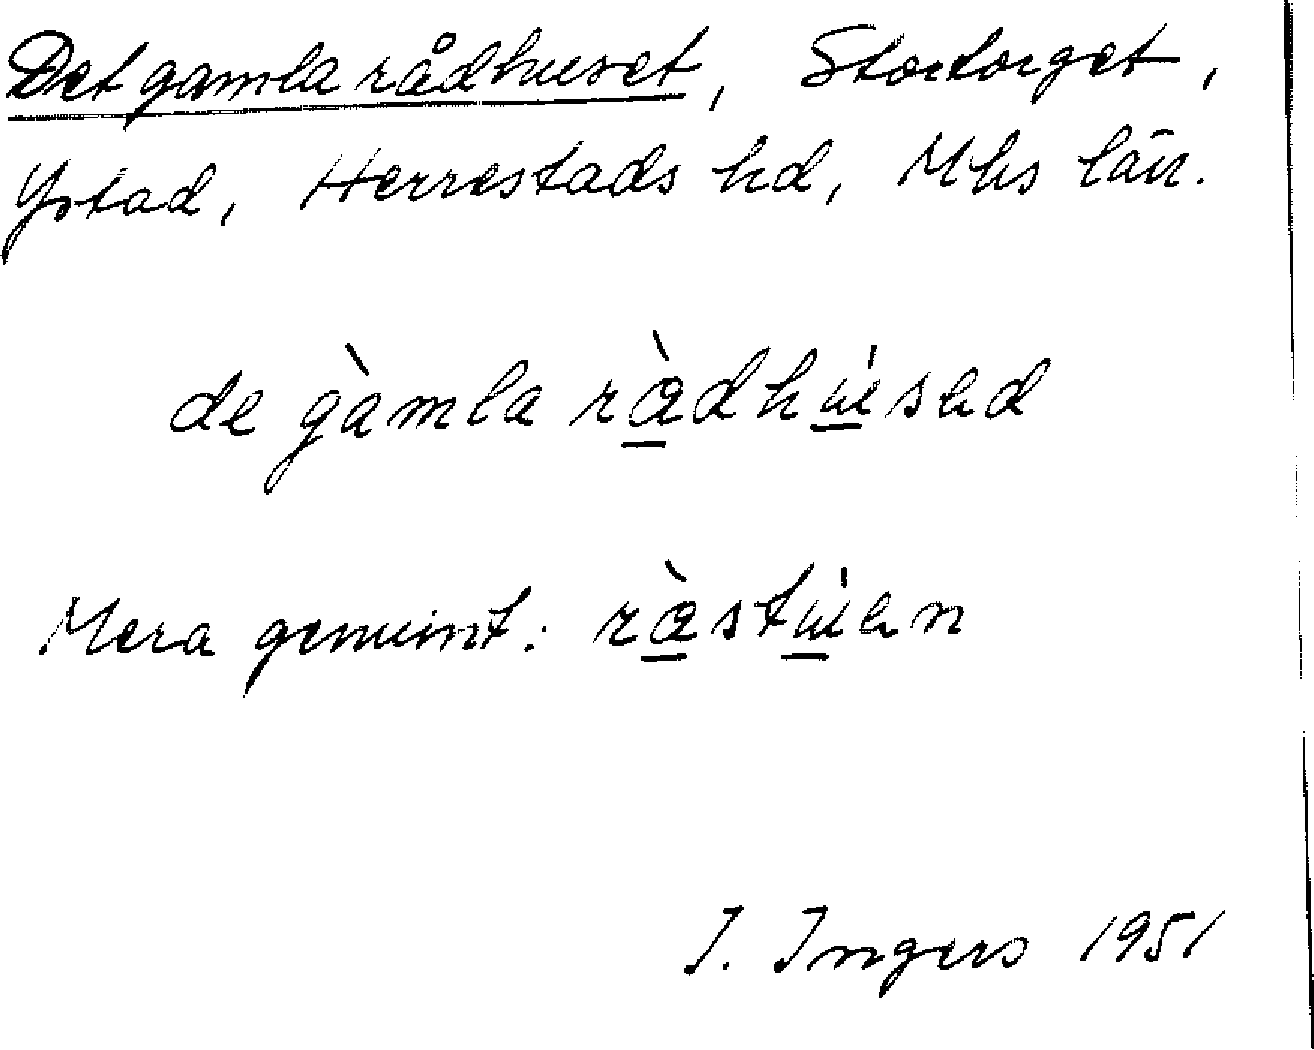 Det gamla rådhuset, Stortorget,
Ystad, Herrestads hd, Mhs län.
de gàmla ràdhúsed
Mera gemeint: ràstúen
I. Ingers 1951